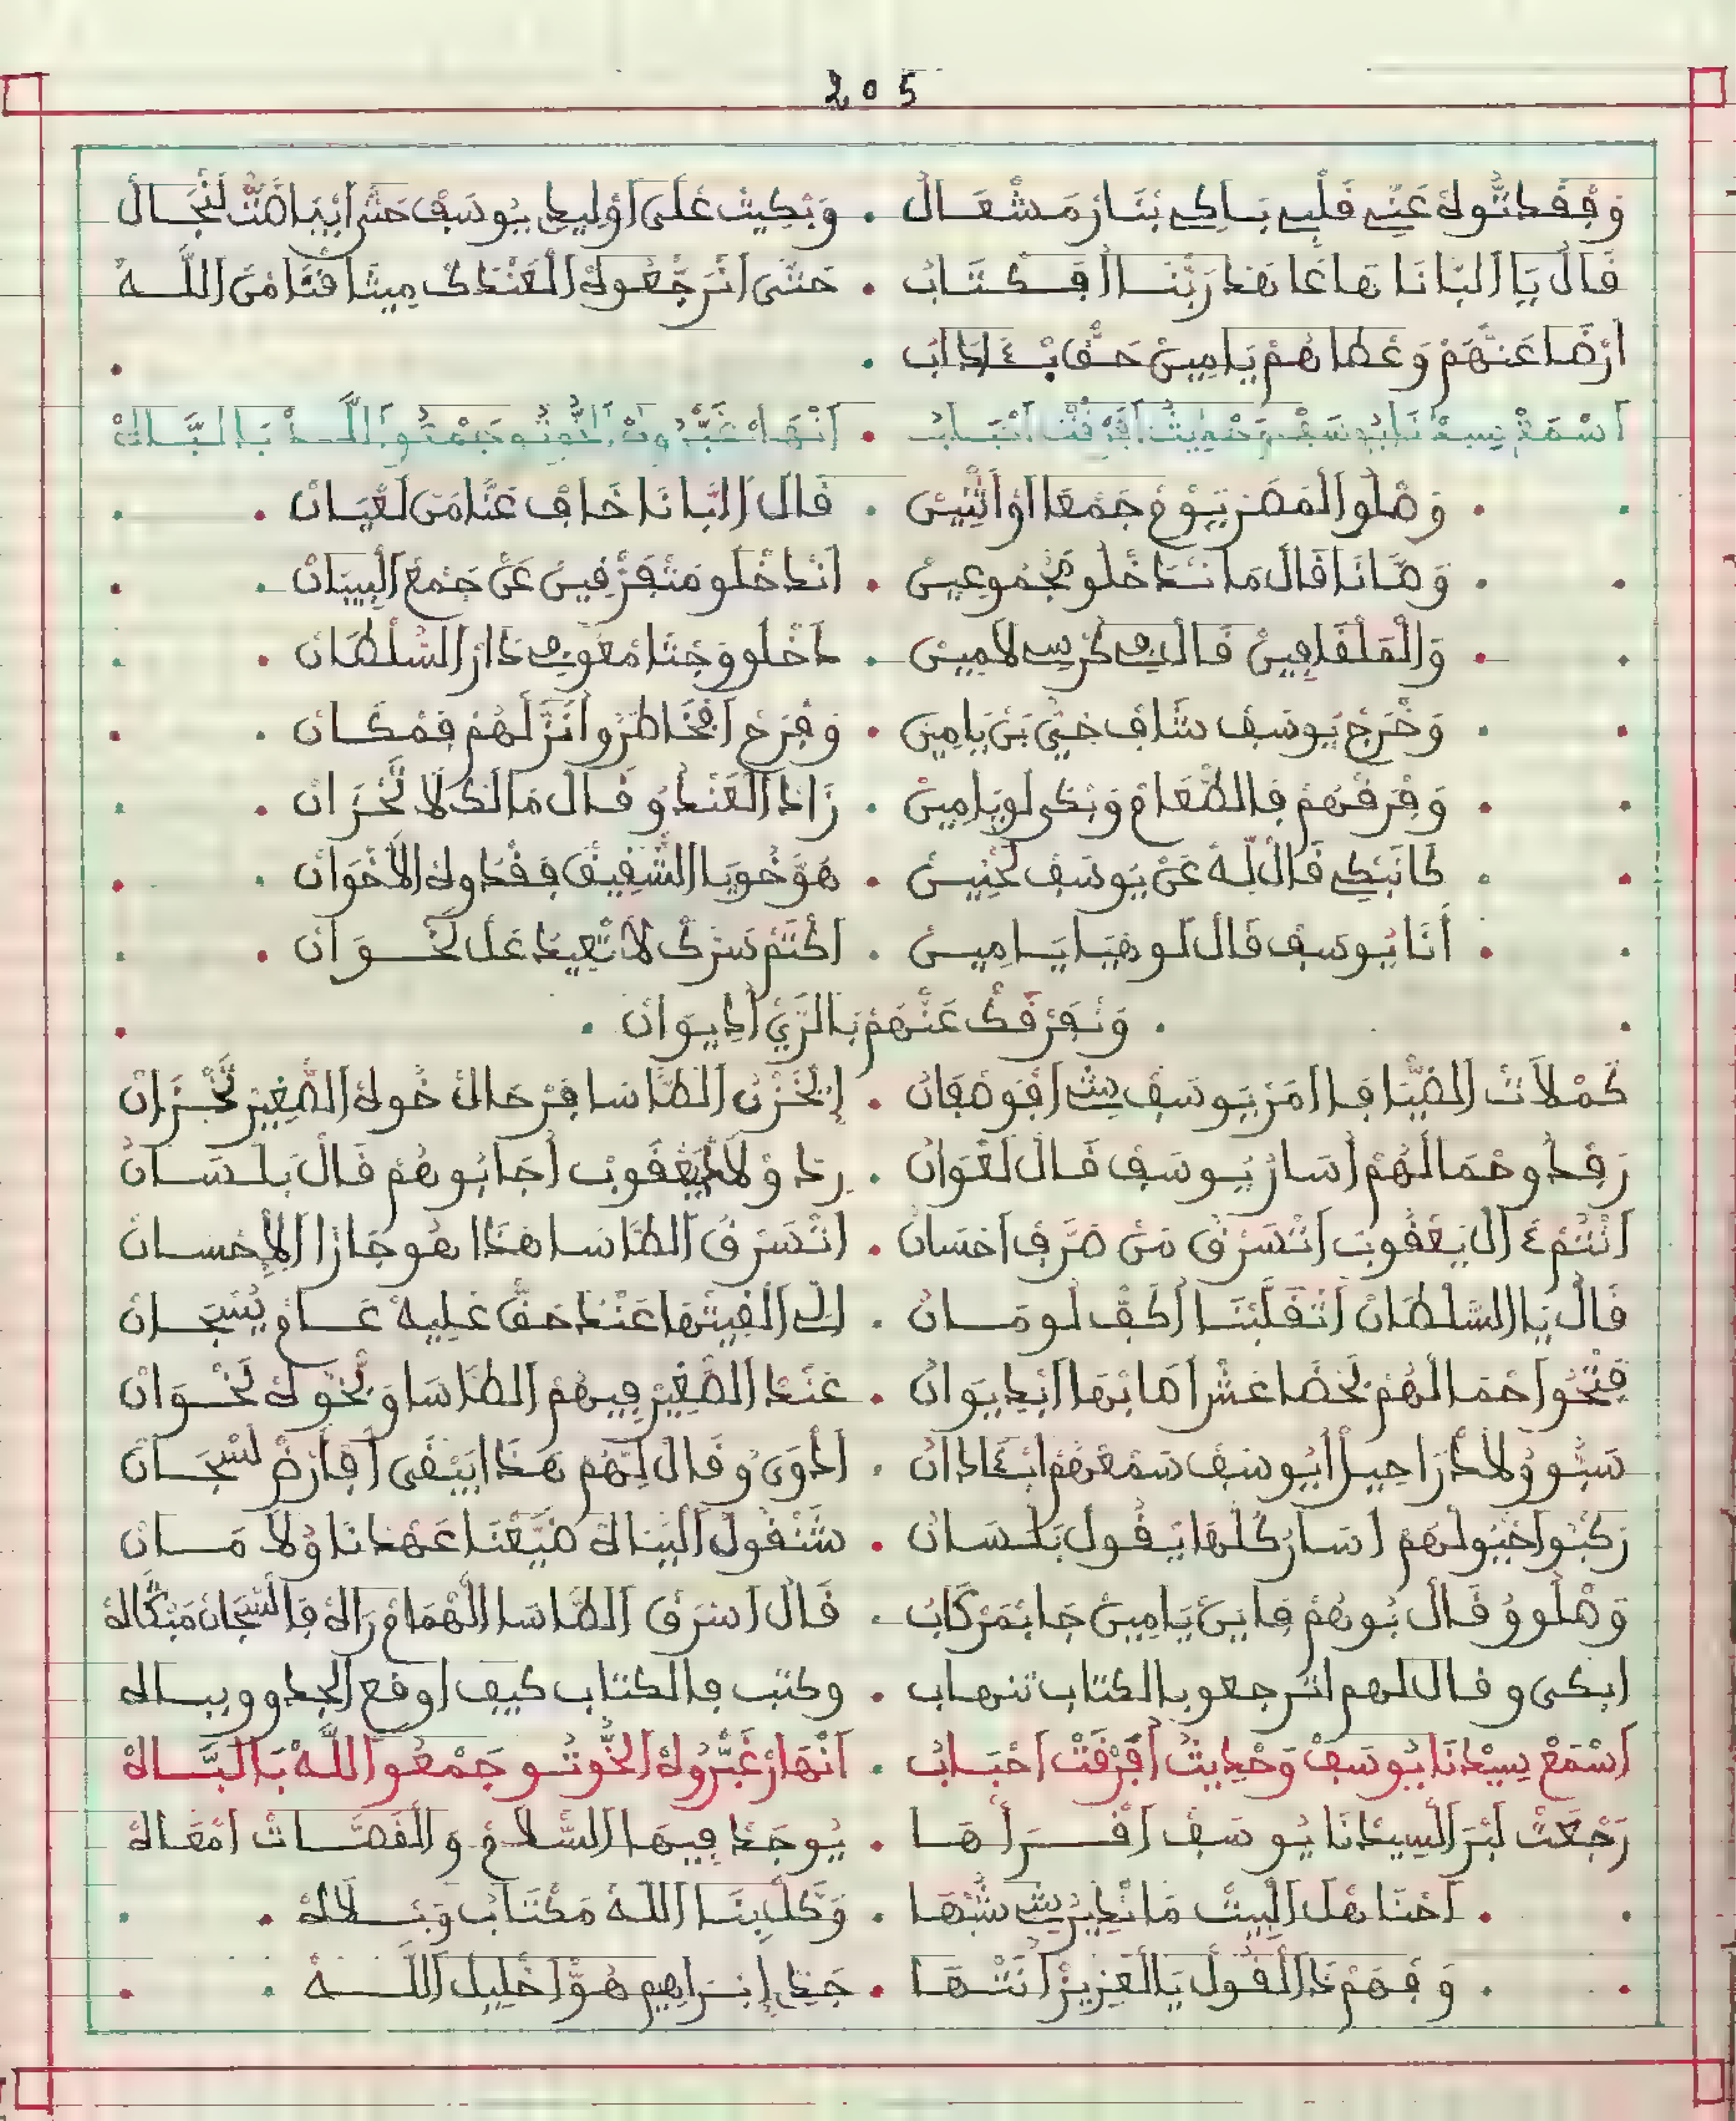 205
وَفَقَدْتُوهْ عَنِّي قَلْبِي بَاكِي بْنَارْ مَشْعَالْ . وَبْكِيتْ عَلَى اوْلِيدِي يُوسَفْ حَتَّى ابْيَاضَتْ لَنْجَالْ
قَالْ يَا الْبَابَا نَا هَا عَاهَدْ رَبْنَا افْكْتَابْ . حَتَّى انْرَجْعُوهْ الْعَنْدَكْ مِيثَاقْنَا مَنَ اللَّه
ارْضَا عَنْهُمْ وَعْطَاهُمْ يَامِينْ حَقْ بْـئَادَابْ .
اسْمَعْ سِيدْنَا يُوسَفْ وَحْدِيثُ افْرَقْتْ احْبَابُ . انْهَارْ غَبْرُوهْ الخُّوتُو جَمْعُو اللَّهْ بَالْبَّاهْ
وَصْلُو الْمَصْرْ يُومْ جَمْعَا اوْ اثْنِينْ . قَالْ الْبَّابَانَا خَافْ عَنَّا مَنْ لَعْيَانْ
وَصَّانَا قَالْ مَا تَنْدَخْلُو مَجْمُوعِينْ . انْدَخْلُو مَتْفَرْقِينْ عَنْ جَمْعْ الْبِيبَانْ
وَالْمَلْقَا فِينْ قَالْ فِي كُرْسِي لَامِينْ . دَخْلُو وَجْتَامْعُو فِي دَارْ السُّلْطَانْ
وَخْرَجْ يُوسَفْ شَافْ خَيِّ بَنْ يَامِينْ . وَفْرَحْ افْخَاطْرُو انَزَّلْهُمْ فِمْكَانْ
وَفْرَقْهُمْ فِالطْعَامْ وَبْكَى لُو يَامِينْ . زَادْ الْعَنْدُو قَالْ مَالَكْ لَا تَحْزَانْ
كَانَبْكِي قَالْ لِهْ عَنْ يُوسَفْ لَحْنِينْ . هُوَّ خُويَا الشْقِيقْ فَقْدُوهْ الْاخْوَانْ
أنَا يُوسَفْ قَالْ لُو هْيَا يَامِينْ . اكْتَمْ سَرَّكْ لَا تْعِيدْ عَلْ لَخْوَانْ
وَنْفَرْقَكْ عَنْهُمْ بَالزَّيْ ادِيوَانْ .
كَمْلَاتْ الضْيَافَا امَرْ يُوسَفْ افْوَصْفَانْ . الطَّاسَا فِرْحَالْ خُوهْ الصْغِيرْ
رَفْدُو حْمَالْهُمْ اسَارْ يُوسَفْ قَالْ لَعْوَانْ . وْلَادْ يَعْقُوبْ اجَابُوهُمْ قَالْ بَلْسَانْ
انْتُمْ ءَالْ يَعْقُوبْ اتْسَرْقْ مَنْ صَرَّفْ احْسَانْ . اتْسَرْقْ الطَّاسَا هَذَا هُو جَازَا الْإِحْسَانْ
قَالْ يَا السُّلْطَانْ اتْقَلَّبْنَا اكَفّ لُومَانْ . الِّي الْقِيتْهَا عَنْدْ حَقّ عْلِيهْ عَامْ يُسْجَانْ
فَتْحُو احْمَالْهُمْ عَنْدْ الصْغِيرْ فِيهُمْ الطَّاسَا
سَبُّو وْلَادْ رَاحِيلْ يُوسَفْ سَمْعْهُمْ ابْـئَادَانْ . قَالْ لِهُمْ هَذَا يَبْقَى افَارْضْ لَسْجَانْ
رَكْبُو اخْيُولْهُمْ اسَارْ كُلْهَا يَقُولْ بَلْسَانْ . شَنْقُولْ الْبَابَاهْ ضَيَّعْنَا عَهْدْنَا وُلَا مَانْ
وَصْلُو وُقَالْ بُوهُمْ فَايَنْ يَامِينْ جَابْمَرْكَابْ . قَالْ اسْرَقْ الطَّاسَا الْهُمَامْ رَاهْ فَالسْجَانْ
ابكى وقال لهم اترجعو بالكتاب تنهاب . وكتب فالكتاب كيف اوقع الجدو وبباه
اسْمَعْ سِيدْنَا يُوسَفْ وَحْدِيثُ افْرَقْتْ احْبَابُ . انْهَارْ غَبْرُوهْ الخُّوتُو جَمْعُو اللَّهْ بَالْبَّاهْ
رَجْعَتْ لَبْرَ السِيدْنَا يُوسَفْ اقْرَاهَا . يُوجَدْ فِيهَا السْلَامْ وَالْقَصَّاتْ امْعَاهْ
احْنَا هْلْ الْبِيتْ مَا . وَكَّلْ بِنَا اللَّهْ مَكْتَابْ وَبْلَاهْ
وَفْهَمْ دَالْقُولْ يَالْعَزِيزْ انْتْهَا . جَدِّ إبْرَاهِيمْ هُوَّ اخْلِيلْ اللَّه